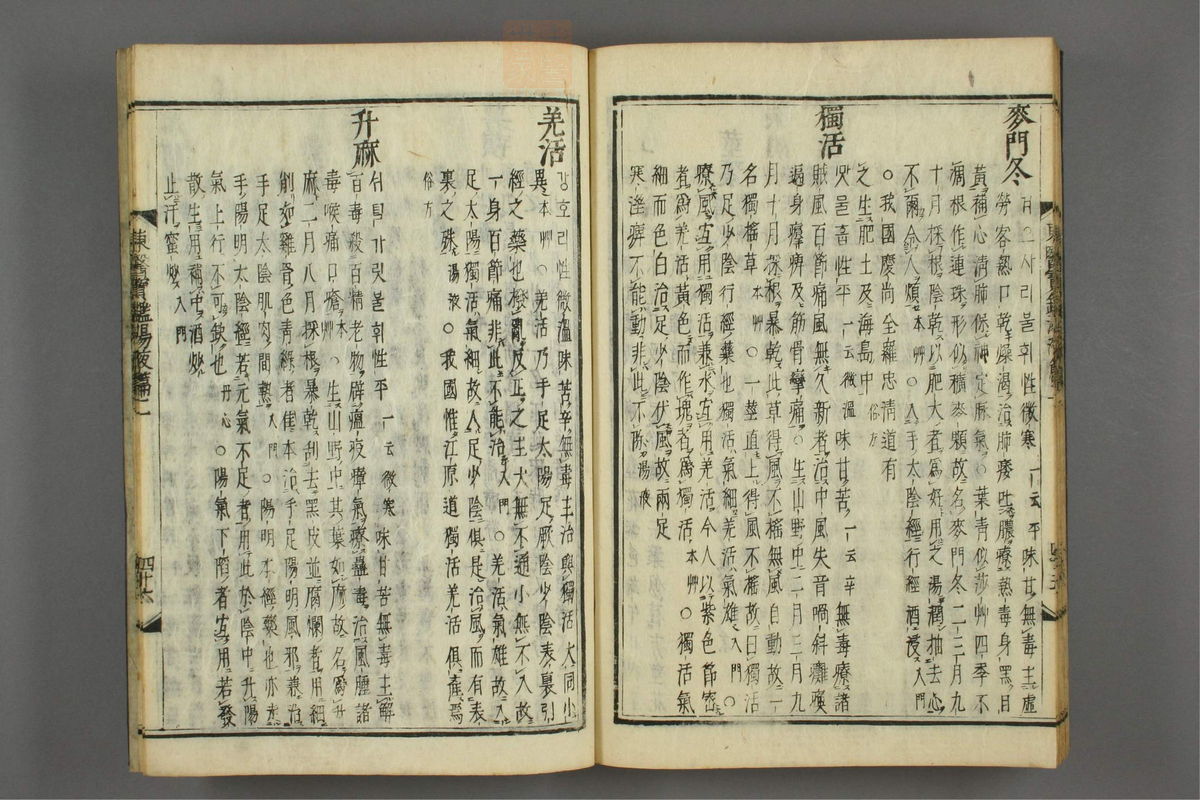 麥門冬
겨으사리불휘性微寒一云平味甘無毒主虛
勞客熱口乾燥渴治肺痿吐膿療熱毒身黑目
黃補心淸肺保神定脉氣○葉靑似莎艸四季不
凋根作連珠形似穬麥顆故名麥門冬二三月九
十月採根陰乾以肥大者爲好用之湯潤抽去心
不爾令人煩本艸○入手太陰經行經酒浸入門
○我國慶尙全羅忠淸道有
之生肥土及海島中俗方
獨活
性平一云微溫味甘苦一云辛無毒療諸
賊風百節痛風無久新者治中風失音喎斜癱瘓
遍身㾹痺及筋骨攣痛○生山野中二月三月九
月十月採根暴乾此草得風不搖無風自動故一
名獨搖草本艸○一莖直上得風不搖故曰獨活
乃足少陰行經藥也獨活氣細羌活氣雄入門○
療風宜用獨活兼水宜用羌活今人以紫色節密
者爲羌活黃色而作塊者爲獨活本艸○獨活氣
細而色白治足少陰伏風故兩足
寒濕痺不能動非此不除湯液
羌活
강호리性微溫味苦辛無毒主治與獨活大同小
異本艸○羌活乃手足太陽足厥陰少陰表裏引
經之藥也撥亂反正之主大無不通小無不入故
一身百節痛非此不能治入門○羌活氣雄故入
足太陽獨活氣細故入足少陰俱是治風而有表
裏之殊湯液○我國惟江原道獨活羌活俱產焉
俗方
升麻
불휘性平一云微寒味甘苦無毒主解
百毒殺百精老物辟瘟疫瘴氣療蠱毒治風腫諸
毒喉痛口瘡本艸○生山野中其葉如麻故名爲升
麻二月八月採根暴乾刮去黑皮並腐爛者用細
削如雞骨色靑綠者佳本治手足陽明風邪兼治
手足太陰肌肉間熱入門○陽明本經藥也亦走
手陽明太陰經若元氣不足者用此於陰中升陽
氣上行不可缺也丹心○陽氣下陷者宜用若發
散生用補中酒炒
止汗蜜炒入門
東醫寶鑑湯液篇